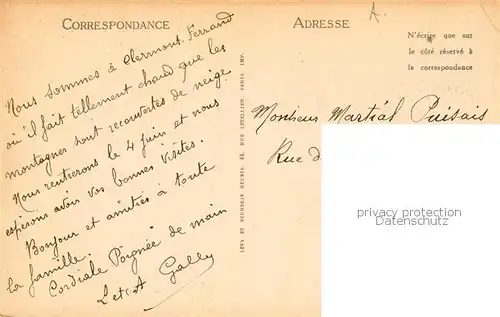 CORRESPONDANCE
Nous sommes à Clermont-Ferrand
où il fait tellement chaud que les
montagnes sont recouvertes de neige
Nous rentrerons le 4 juin et nous
espérons avoir vos bonnes visites.
Bonjour et amitiés à toute
la famille.
Cordiale Poignée de main
L et A Gally
LEVY ET NEURDEIN REUNIS, 44, RUE LETELLIER, PARIS. IMP.
ADRESSE
A.
N'écrire que sur
le côté réservé à
la correspondance
Monsieur Martial Puisais
Rue d
privacy protection
www.oldthing.de